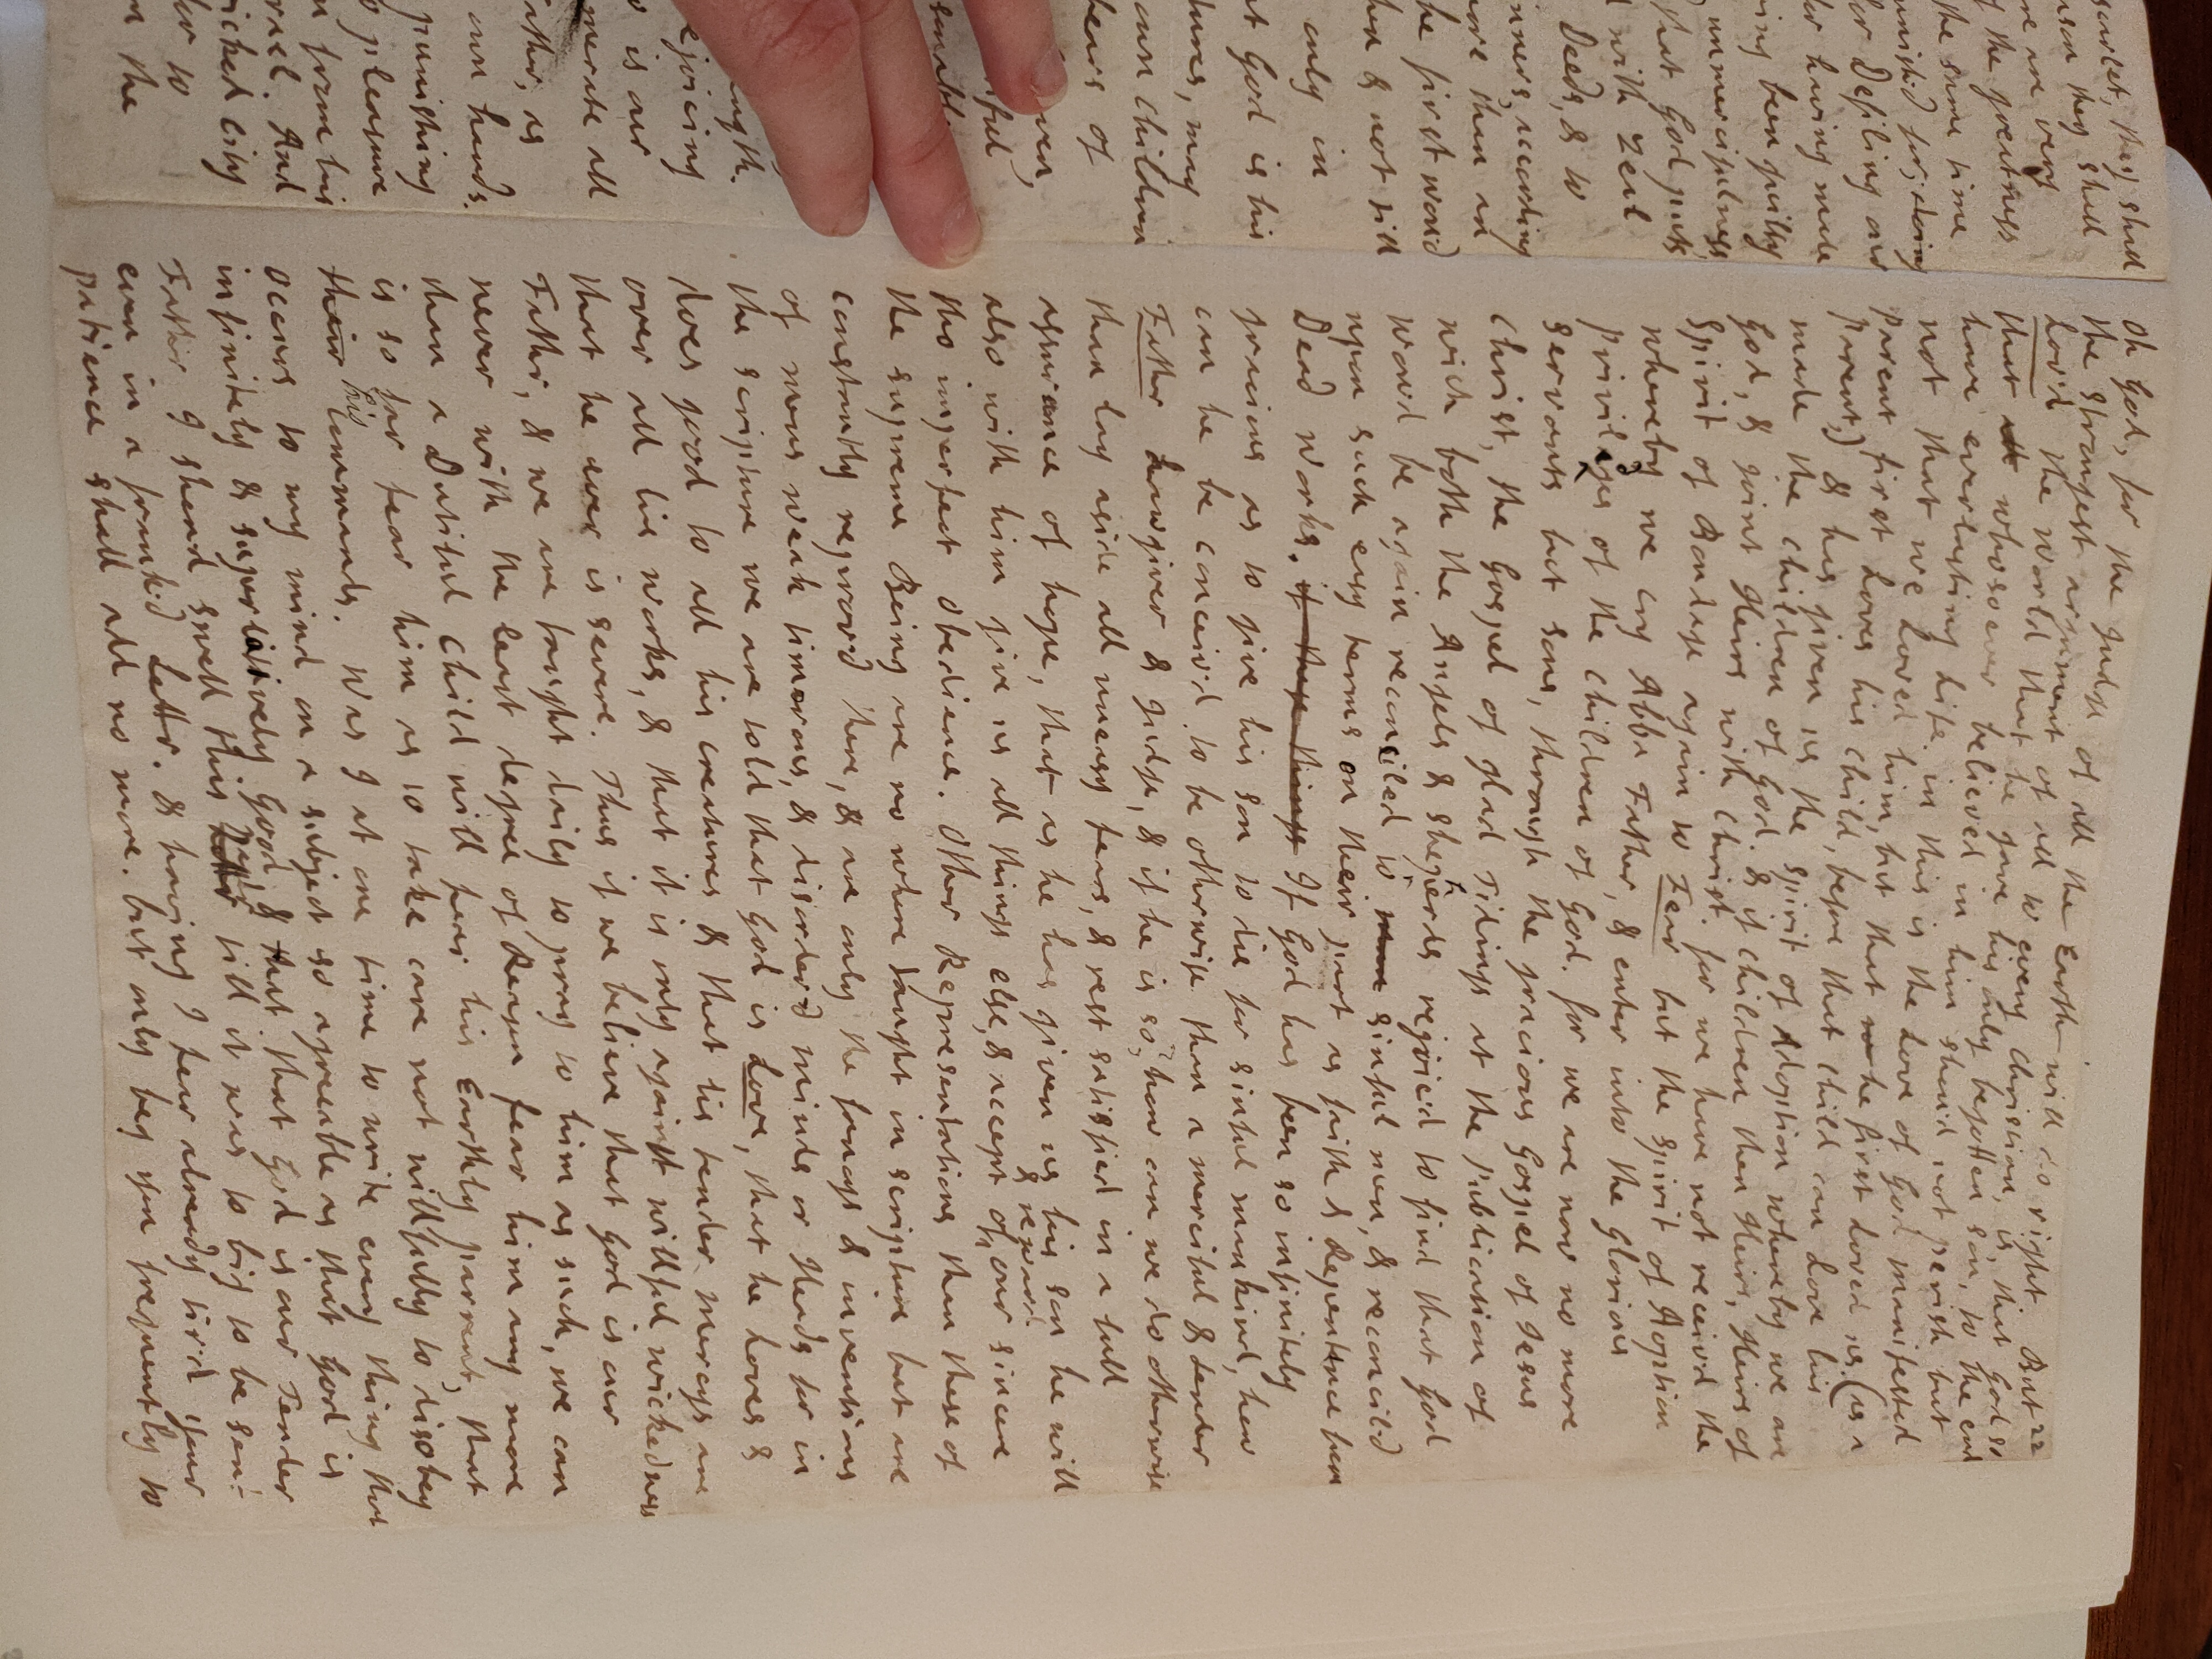 scarlet, they shall
they shall
are very
the greatness
the same time
punish'd for; doing
for Defiling our
for having made
been guilty
unmercifulness,
that God puts
with Zeal
Deeds, & to
sinners, according
more than an
he first wou'd
& not till
only in
God is his
may
own children
hears of
ejoicing
is our
all
Father, as
own hands.
punishing
pleasure
from his
And
wicked city
to
the
Oh God, for the Judge of all the Earth will do right. But 22
the strongest argument of all to every Christian, is, that God so
Lov'd the World that he gave his only begotten son, to the end
that all whosoever believed in him shou'd not perish but
have everlasting Life. in this is the Love of God manifested
not that we Loved him, but that he first Loved us. (as a
Parent first Loves his child, before that child can Love his
Parent,) & has given us the spirit of Adoption whereby we are
made the children of God. & if children then Heirs, Heirs of
God, & joint Heirs with Christ. for we have not receiv'd the
Spirit of Bondage again to Fear but the spirit of Aoption
whereby we cry Abba Father, & enter into the Glorious
Priviledges of the children of God. for we are now no more
servants but sons, through the gracious Gospel of Jesus
Christ, the Gospel of glad Tidings at the Publication of
wich both the Angels & shepherds rejoic'd to find that God
wou'd be again reconciled to man sinful men, & reconcil'd
upon such easy terms on their part as faith & Repentance from
Dead Works. if these things If God has been so infinitely
gracious as to give his son to die for sinful mankind, how
can he be conceiv'd to be otherwise than a merciful & tender
Father Lawgiver & Judge, & if he is so, how can we do otherwise
than lay aside all uneasy fears, & rest satisfied in a full
assurance of hope, that as he has given us his son he will
also with him give us all things else, & accept of & reward our sincere
tho imperfect Obedience. Other Representations than these of
the supreme Being are no where taught in scripture but are
constantly reprov'd there, & are only the fancys & inventions
of mens weak timorous, & disorder'd minds or Heads for in
the scripture we are told that God is Love, that he Loves &
does good to all his creatures & that his tender mercys are
over all his works, & that it is only against willful wickedness
that he ever is severe. Thus if we believe that God is our
Father, & we are taught daily to pray to him as such, we can
never with the least degree of Reason fear him any more
than a Dutiful child will fear his Earthly parrent, that
is so far fear him as to take care not willfully to disobey
their his commands. Was I at one time to write every thing that
occurs to my mind on a subject so agreeable as that God is
infinitely & superlatively Good, & that that God is our Tender
Father I shou'd swell this till it was to big to be sent
even in a frank'd Letter. & having I fear already tir'd your
patience shall add no more. but only beg you frequently to